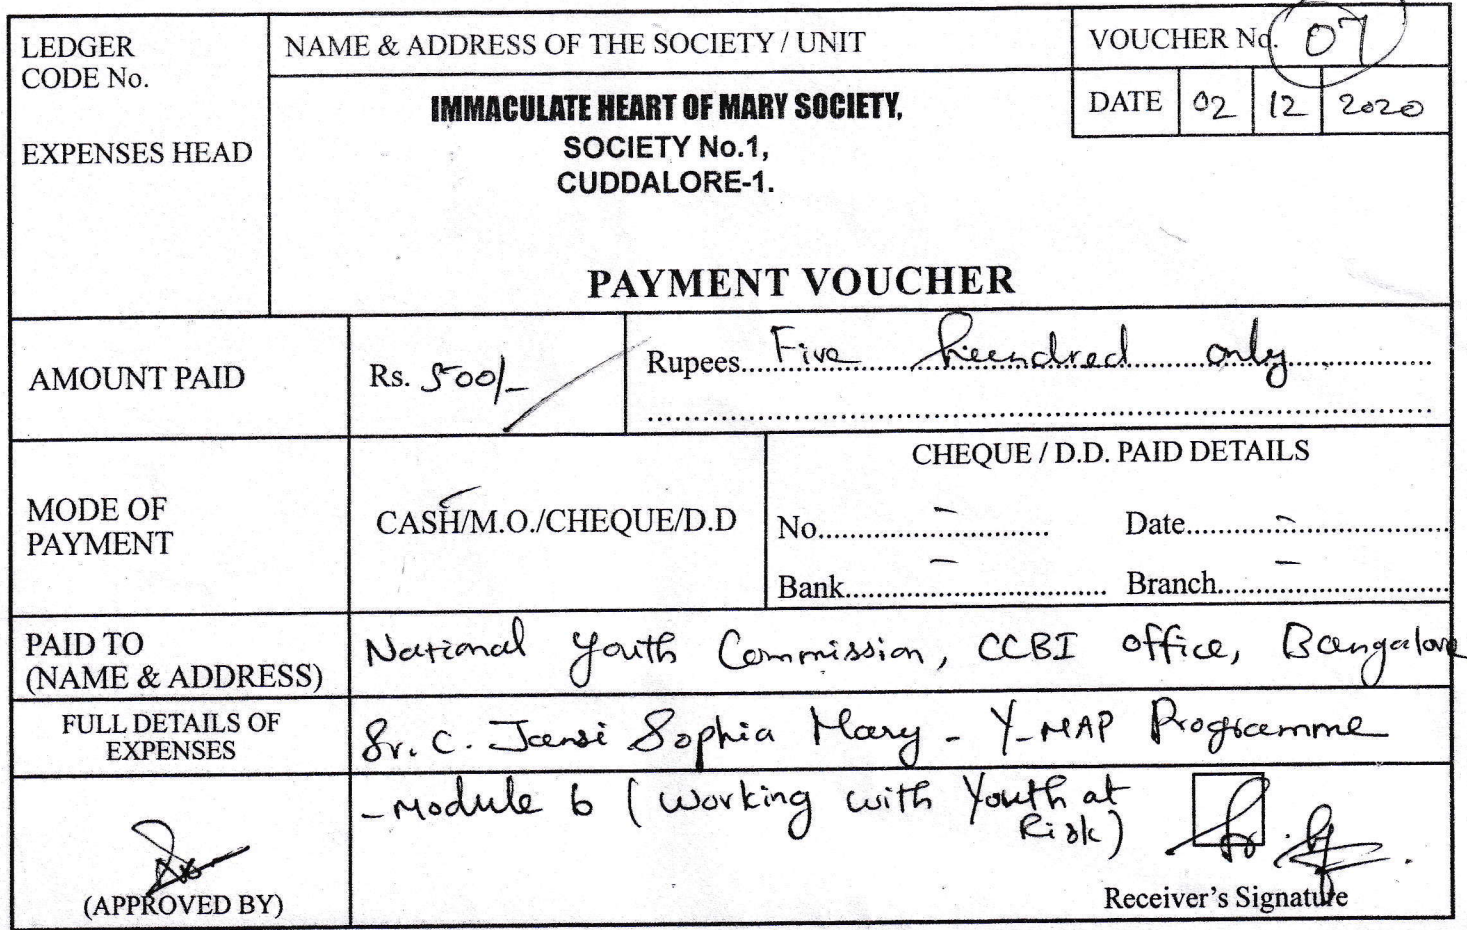 LEDGER
CODE No.
EXPENSES HEAD
NAME & ADDRESS OF THE SOCIETY / UNIT
IMMACULATE HEART OF MARY SOCIETY,
SOCIETY No.1,
CUDDALORE-1.
VOUCHER No. 07
DATE 02 12 2020
PAYMENT VOUCHER
AMOUNT PAID
Rs. 500/-
Rupees Five hundred only
MODE OF
PAYMENT
CASH/M.O./CHEQUE/D.D
CHEQUE / D.D. PAID DETAILS
No. - Date -
Bank - Branch -
PAID TO
(NAME & ADDRESS)
National Youth Commission, CCBI office, Bangalore
FULL DETAILS OF
EXPENSES
Sr. C. Jansi Sophia Mary - Y-MAP Programme
- Module 6 (Working with Youth at
Risk)
(APPROVED BY)
Receiver's Signature